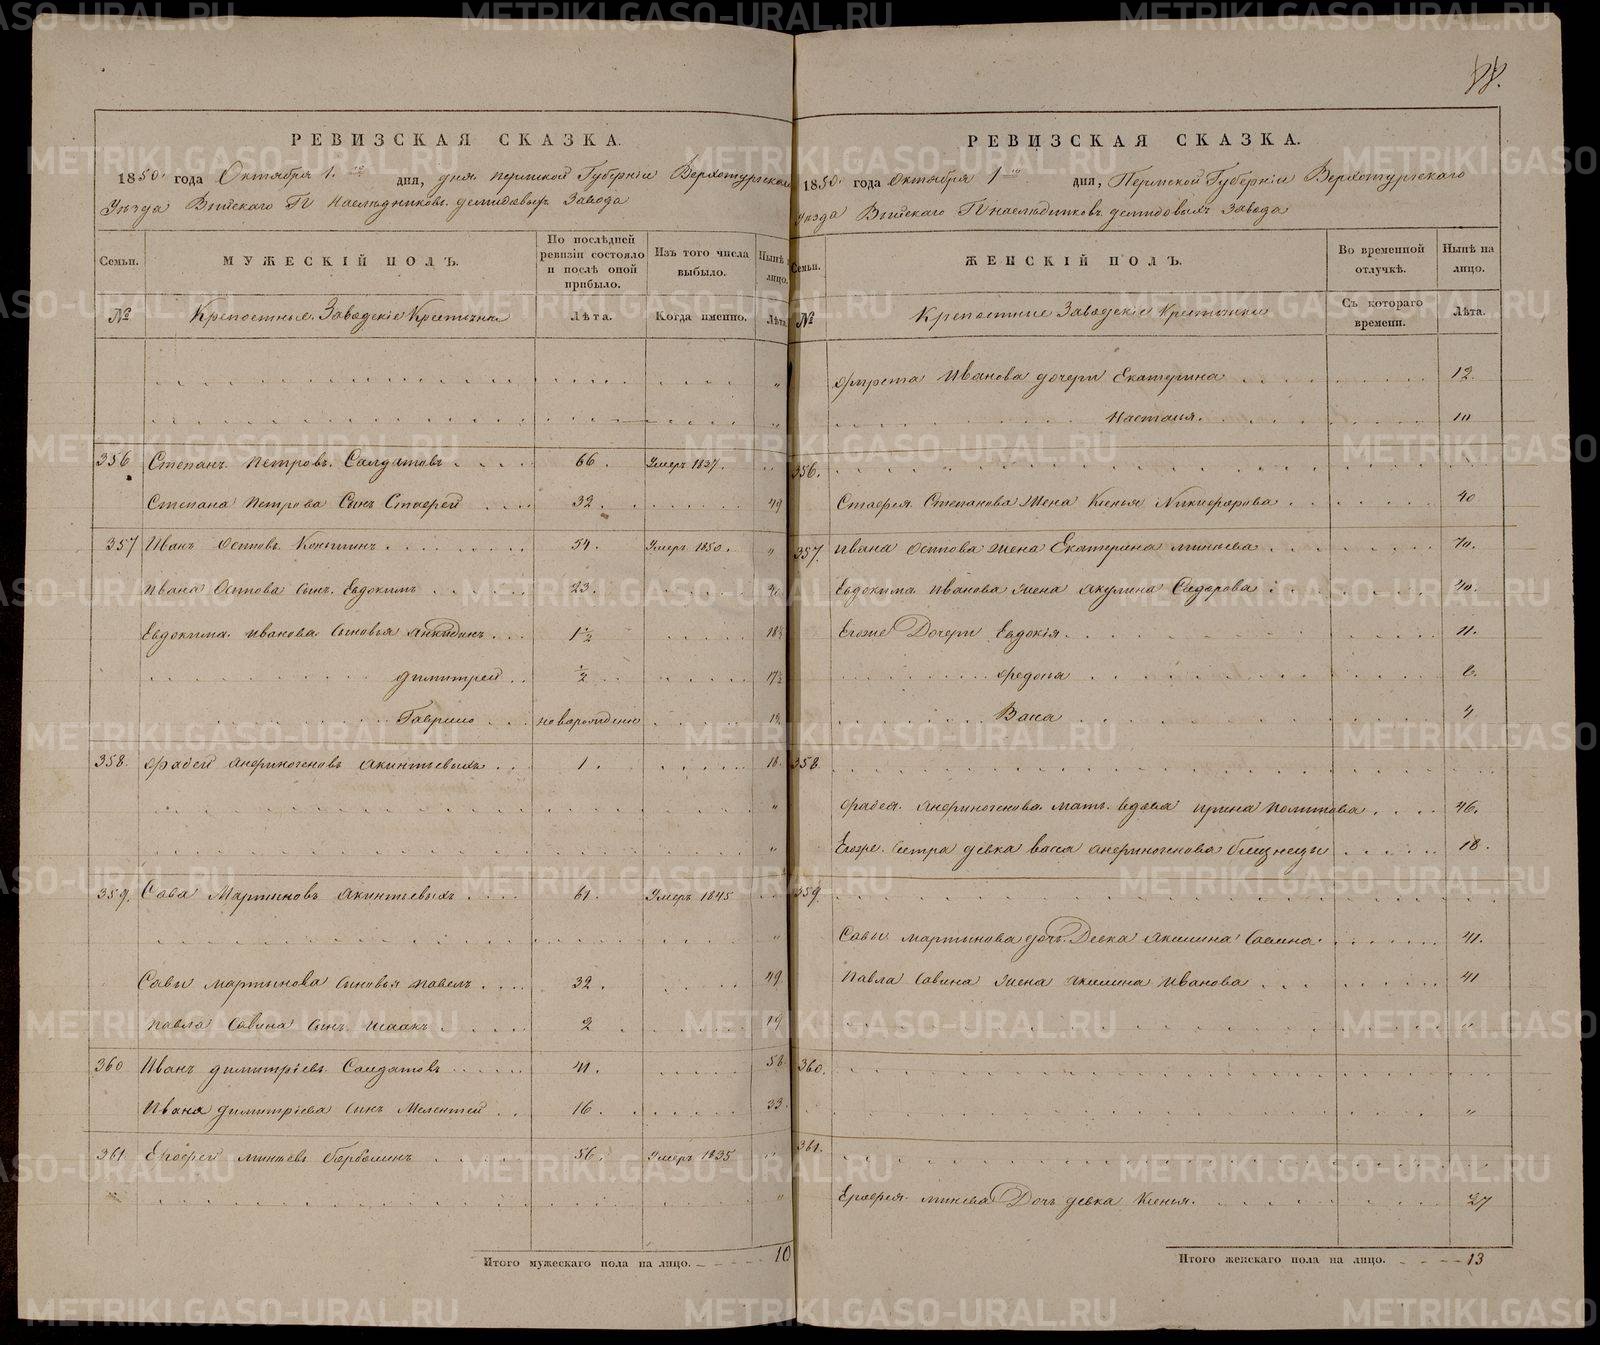 РЕВИЗСКАЯ СКАЗКА.
1850. года Октября 1.го дня, дня пермской Губернiи Верхотурскаго
Уѣзда Выйскаго ГГ наслѣдниковъ демидовыхъ Завода
Семьи.
МУЖЕСКIЙ ПОЛЪ.
По послѣдней ревизiи состояло и послѣ оной прибыло.
Изъ того числа выбыло.
Нынѣ на лицо.
№
Крепостные Заводскiе Крестьяна
Лѣта.
Когда именно.
Лѣта.
356 Степанъ Петровъ Салдатовъ 66. Умеръ 1837.
Степана Петрова Сынъ Стафей 32. 49
357 Иванъ Осиповъ Коньшинъ 54. Умеръ 1850. "
Ивана Осипова сынъ Евдокимъ 23. 40
Евдокима иванова Сыновья 1½ 18½
димитрей ½ 17½
Гаврило новорожденн
358. фадей анфиногеновъ Акинтьевыхъ 1. 18.
359. Сава Мартиновъ Акинтьевыхъ 61. Умеръ 1845
Савы мартинова Сыновья павелъ 32. 49
павла Савина Сынъ Исаакъ 2 19
360 Иванъ димитрiевъ Салдатовъ 41. 58
Ивана димитрiева Сынъ Мелентей 16. 33.
361 Ерофей минѣевъ 56. Умеръ 1835
Итого мужескаго пола на лицо. 10
РЕВИЗСКАЯ СКАЗКА.
1850. года Октября 1го дня, Пермской Губернiи Верхотурскаго
уезда Выйскаго ГГ наслѣдниковъ демидовыхъ Завода
Семьи.
ЖЕНСКIЙ ПОЛЪ.
Во временной отлучкѣ.
Нынѣ на лицо.
№
Крепостные Заводскiе Крестьянки
Съ котораго времени.
Лѣта.
Иванова дочери Екатерина 12.
Настасья. 10
356.
Стафея Степанова Жена Ксенья Никифорова 40
357. ивана осипова жена Екатерина минѣева 70.
Евдокима иванова жена Акулина Сидорова 40.
Егоже Дочери Евдокiя. 11.
федосья 6.
Васа 4
358.
фадея анфиногенова Мать вдова ирина 46.
Егоже Сестра девка васса анфиногенова близнецы 18.
359.
Савы мартинова дочь Девка Акилина Савина. 41.
павла Савина жена Акилина Иванова 41
360.
361.
Ерофея минѣева Дочь девка Ксенья. 27
Итого женскаго пола на лицо. 13
METRIKI.GASO-URAL.RU